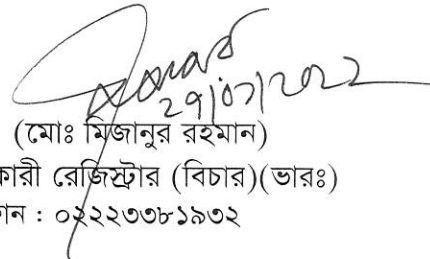 ২৭/০৭/২০২২
(মোঃ মিজানুর রহমান)
কারী রেজিস্ট্রার (বিচার)(ভারঃ)
ান : ০২২২৩৩৮১৯৩২